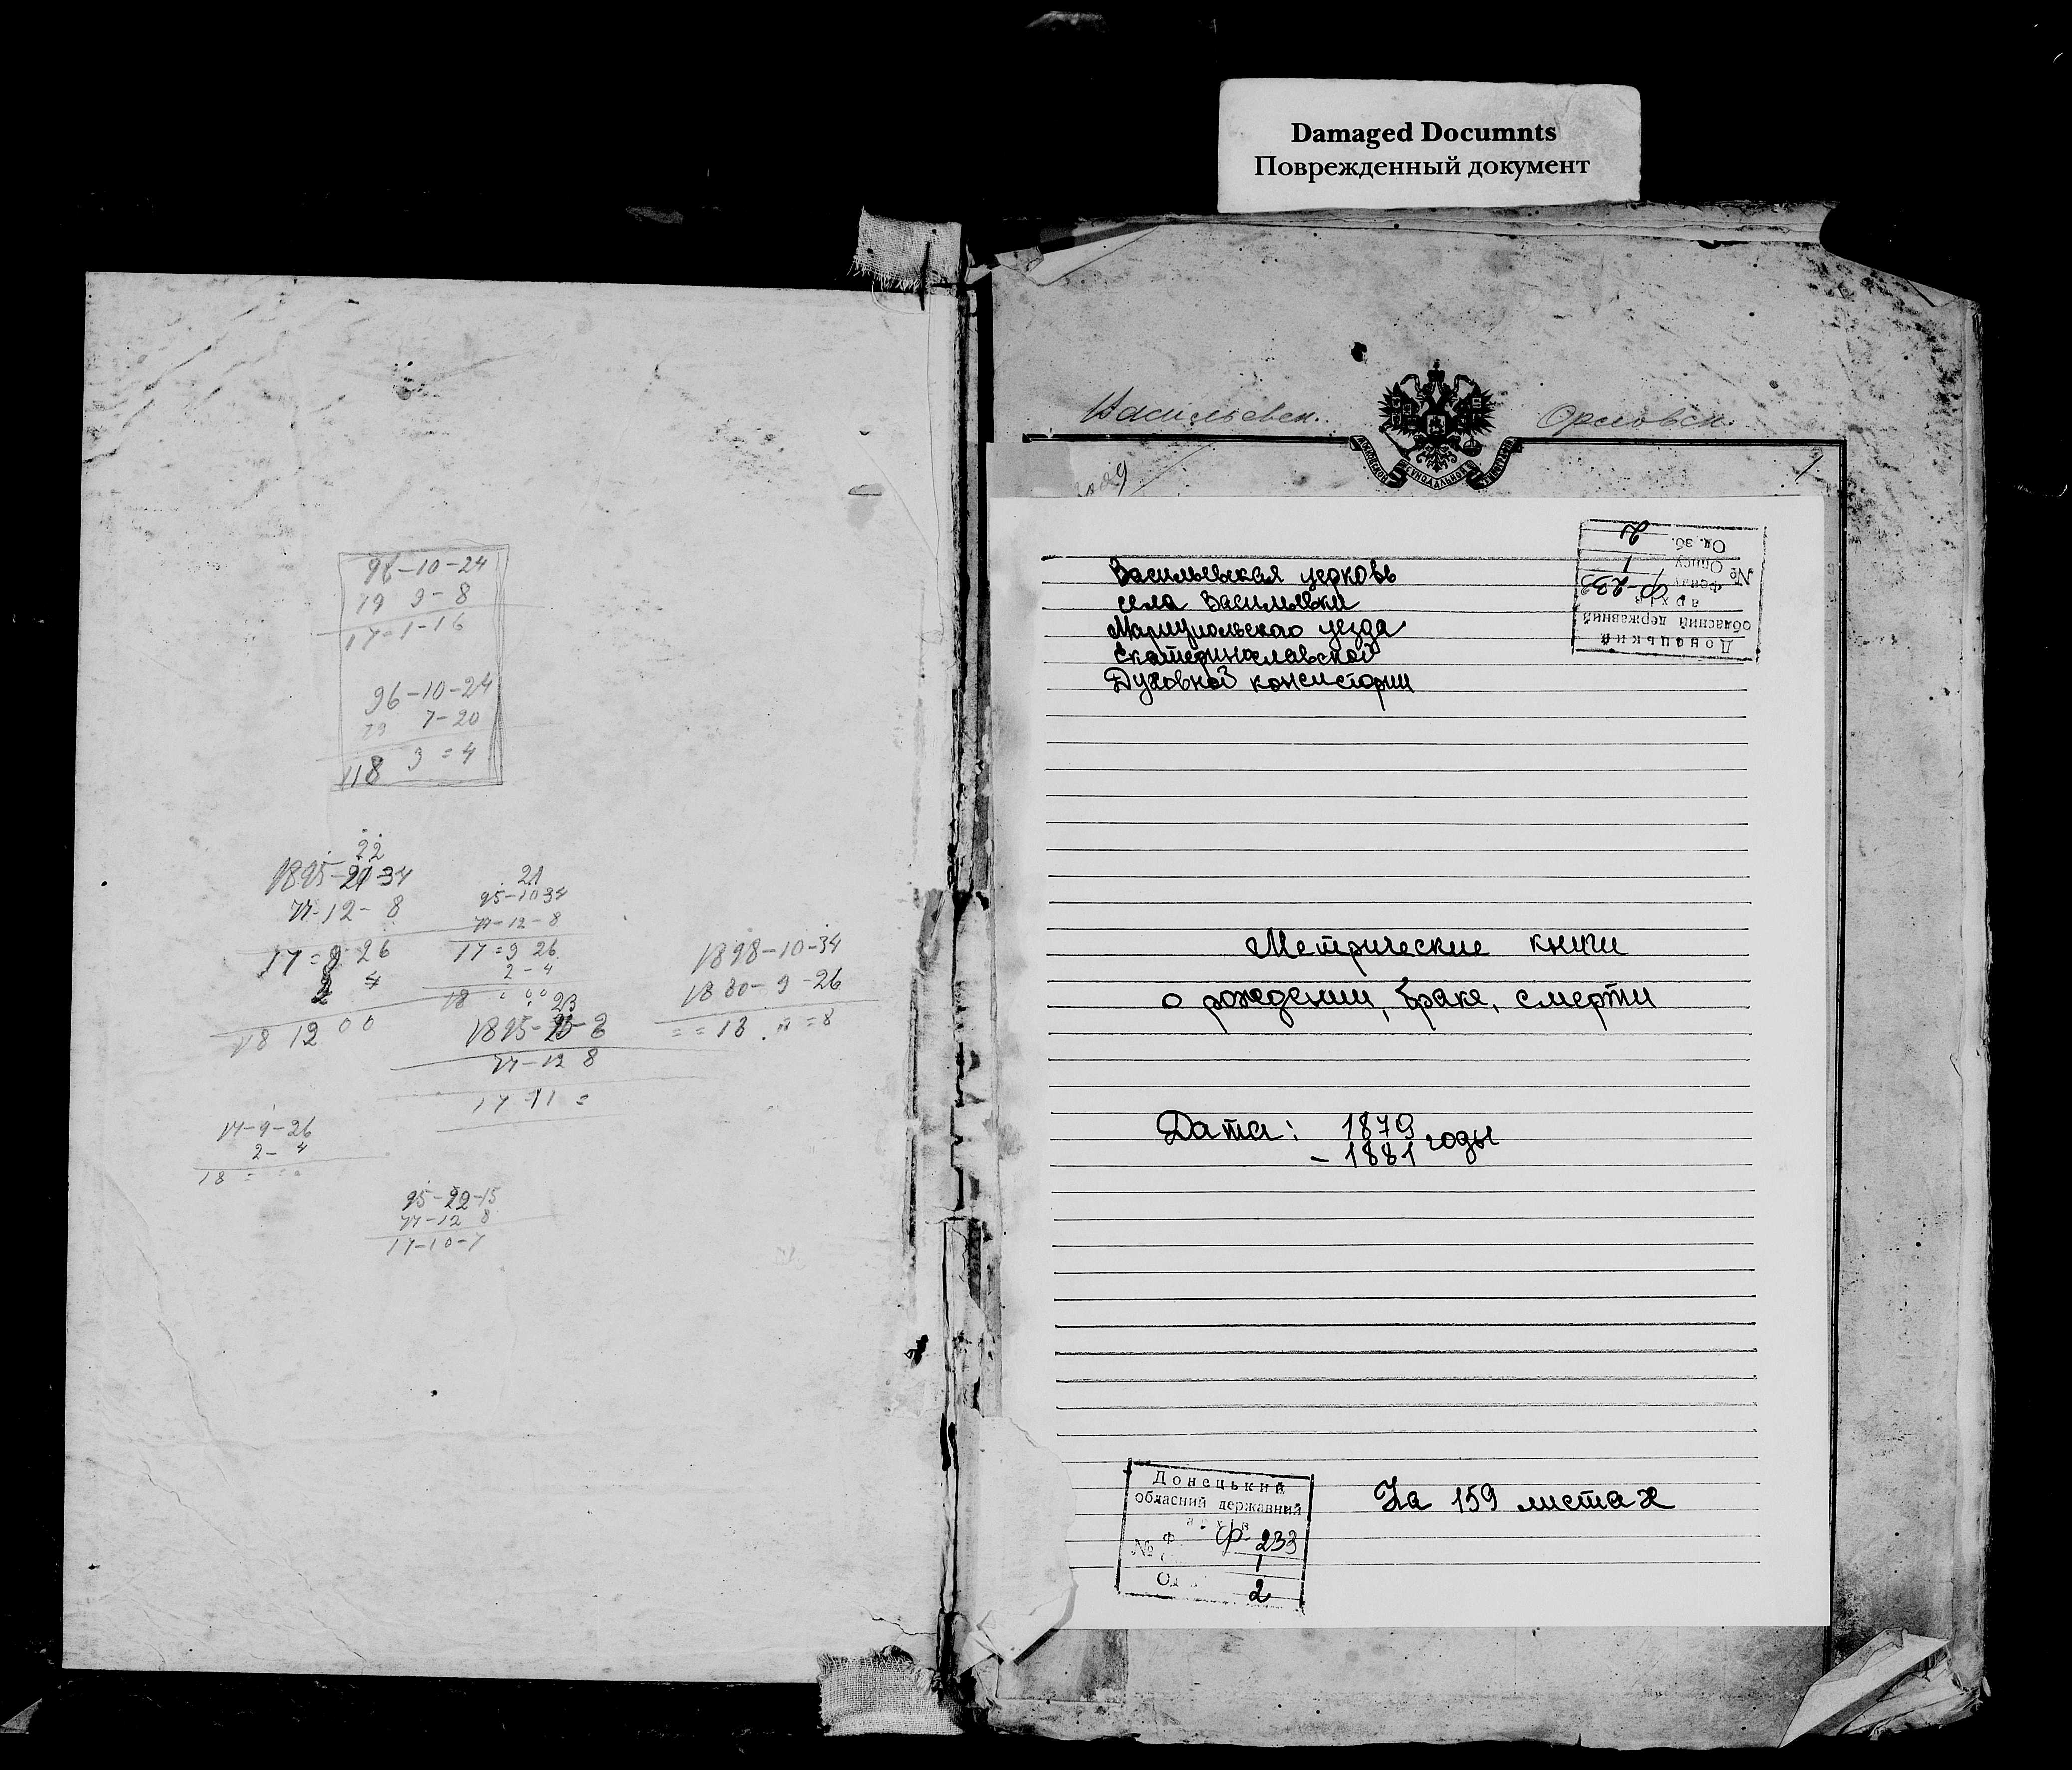 Damaged Documnts
Поврежденный документ
96-10-24
79 9-8
17-1-16
96-10-24
79 7-20
118 3=4
22
1895-21-34
77-12-8
17=9 26
2 4
18 12 00
21
95-10 34
77-12-8
17=9 26
2-4
18
23
77-12 8
17 11 =
1898-10-34
1880-9-26
==18 . "=8
17-9-26
2-4
18 =
95-22-15
77-12 8
17-10-7
Васильевск. Орловск.
МОСКОВСКОЙ СѴНОДАЛЬНОЙ ТИПОГРАФІИ
1
Донецький
обласний державний
архів
№ Фонду Ф-233
Опису 1
Од. зб. 2
Васильевская церковь
села Васильевки
Мариупольского уезда
Екатеринославской
Духовной консистории
Метрические книги
о рождении, браке, смерти
Дата: 1879
- 1881 годы
На 159 листах
Донецький
обласний державний
архів
№ Ф Ф-233
1
Од 2